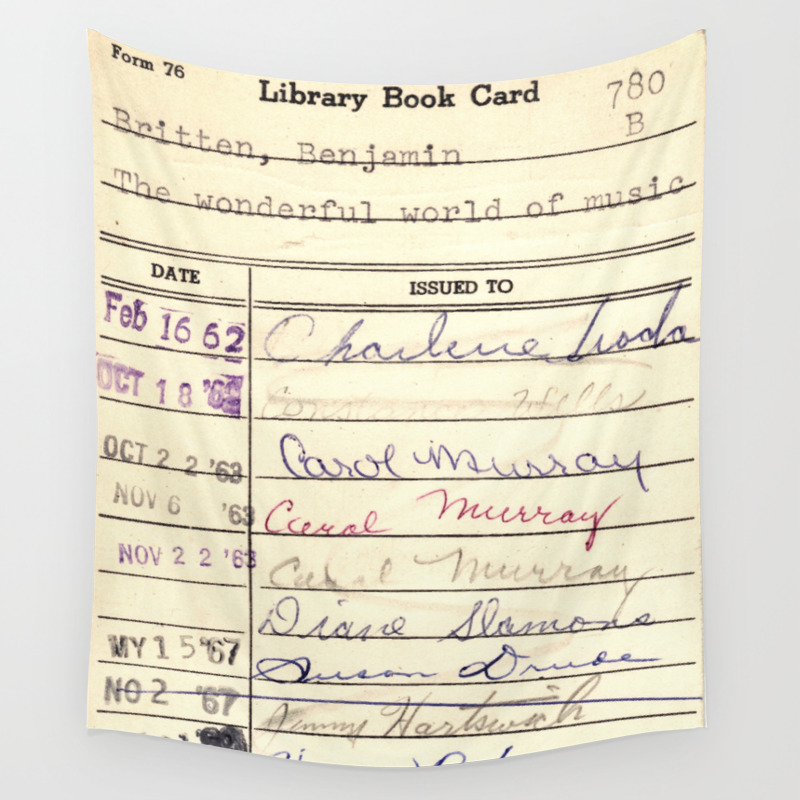 Form 76
Library Book Card
780
B
Britten, Benjamin
The wonderful world of music
DATE ISSUED TO
Feb 16 62 Charlene
OCT 18 Constance Wells
OCT 22 '63 Carol Murray
NOV 6 '63 Carol Murray
NOV 22 '63 Carol Murray
Diane Slamons
MY 15 '67 Susan Druse
NO 2 '67 Jimmy